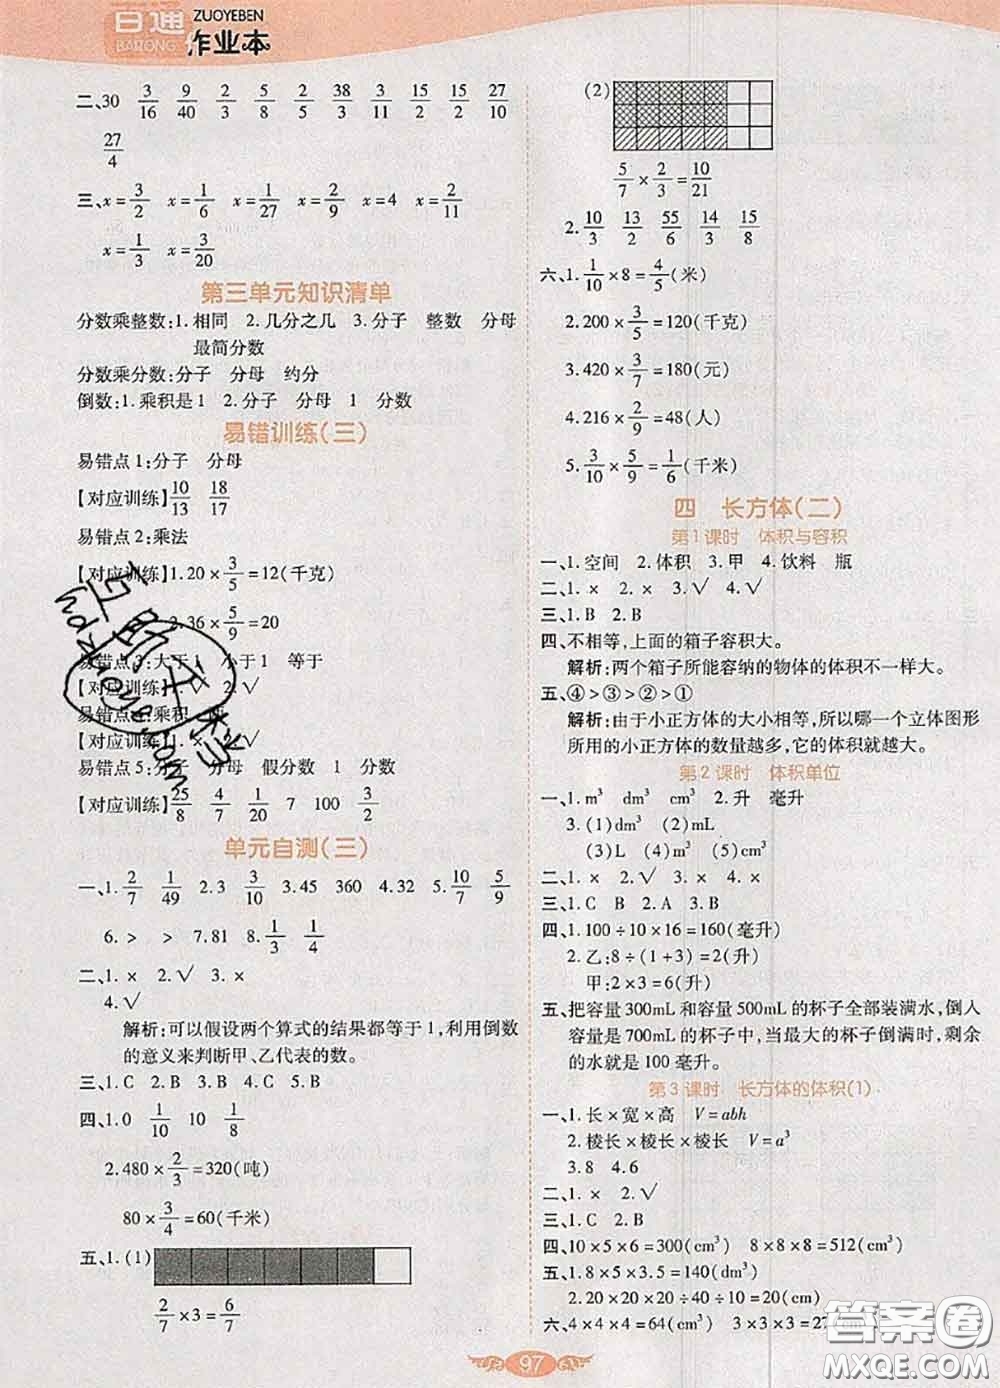 百通
BAITONG
ZUOYEBEN
作业本
二、30 3/16 9/40 2/3 5/8 2/5 38/3 3/11 15/2 15/2 27/10
27/4
三、x=3/2 x=1/6 x=1/27 x=2/9 x=4 x=2/11
x=1/3 x=3/20
第三单元知识清单
分数乘整数:1.相同 2.几分之几 3.分子 整数 分母
最简分数
分数乘分数:分子 分母 约分
倒数:1.乘积是1 2.分子 分母 1 分数
易错训练(三)
易错点1:分子 分母
【对应训练】10/13 18/17
易错点2:乘法
【对应训练】1.20×3/5=12(千克)
2.36×5/9=20
易错点3:大于1 小于1 等于
【对应训练】1. 2.√
易错点4:乘积
【对应训练】1.× 2.√
易错点5:分子 分母 假分数 1 分数
【对应训练】25/8 4/7 1/20 7 100 3/2
单元自测(三)
一、1.2/7 1/49 2.3 3/10 3.45 360 4.32 5.10/7 5/9
6.> > 7.81 8.1/3 1/4
二、1.× 2.√ 3.×
4.√
解析:可以假设两个算式的结果都等于1,利用倒数
的意义来判断甲、乙代表的数。
三、1.C 2.B 3.B 4.C 5.B
四、1.0 1/10 10 1/8
2.480×2/3=320(吨)
80×3/4=60(千米)
五、1.(1)
2/7×3=6/7
(2)
5/7×2/3=10/21
2.10/3 13/2 55/6 14/3 15/8
六、1.1/10×8=4/5(米)
2.200×3/5=120(千克)
3.420×3/7=180(元)
4.216×2/9=48(人)
5.3/10×5/9=1/6(千米)
四 长方体(二)
第1课时 体积与容积
一、1.空间 2.体积 3.甲 4.饮料 瓶
二、1.× 2.× 3.√ 4.√
三、1.B 2.B
四、不相等,上面的箱子容积大。
解析:两个箱子所能容纳的物体的体积不一样大。
五、④>③>②>①
解析:由于小正方体的大小相等,所以哪一个立体图形
所用的小正方体的数量越多,它的体积就越大。
第2课时 体积单位
一、1.m³ dm³ cm³ 2.升 毫升
3.(1)dm³ (2)mL
(3)L (4)m³ (5)m³
二、1.× 2.√ 3.× 4.×
三、1.C B 2.A 3.B
四、1.100÷10×16=160(毫升)
2.乙:8÷(1+3)=2(升)
甲:2×3=6(升)
五、把容量300mL和容量500mL的杯子全部装满水,倒人
容量是700mL的杯子中,当最大的杯子倒满时,剩余
的水就是100毫升。
第3课时 长方体的体积(1)
一、1.长×宽×高 V=abh
2.棱长×棱长×棱长 V=a³
3.8 4.6
二、1.× 2.√
三、1.C 2.B
四、10×5×6=300(cm³) 8×8×8=512(cm³)
五、1.8×5×3.5=140(dm³)
2.20×20×20÷40÷10=20(cm)
六、4×4×4=64(cm³) 3×3×3=27(cm³)
97
答案圈
MXQE.COM